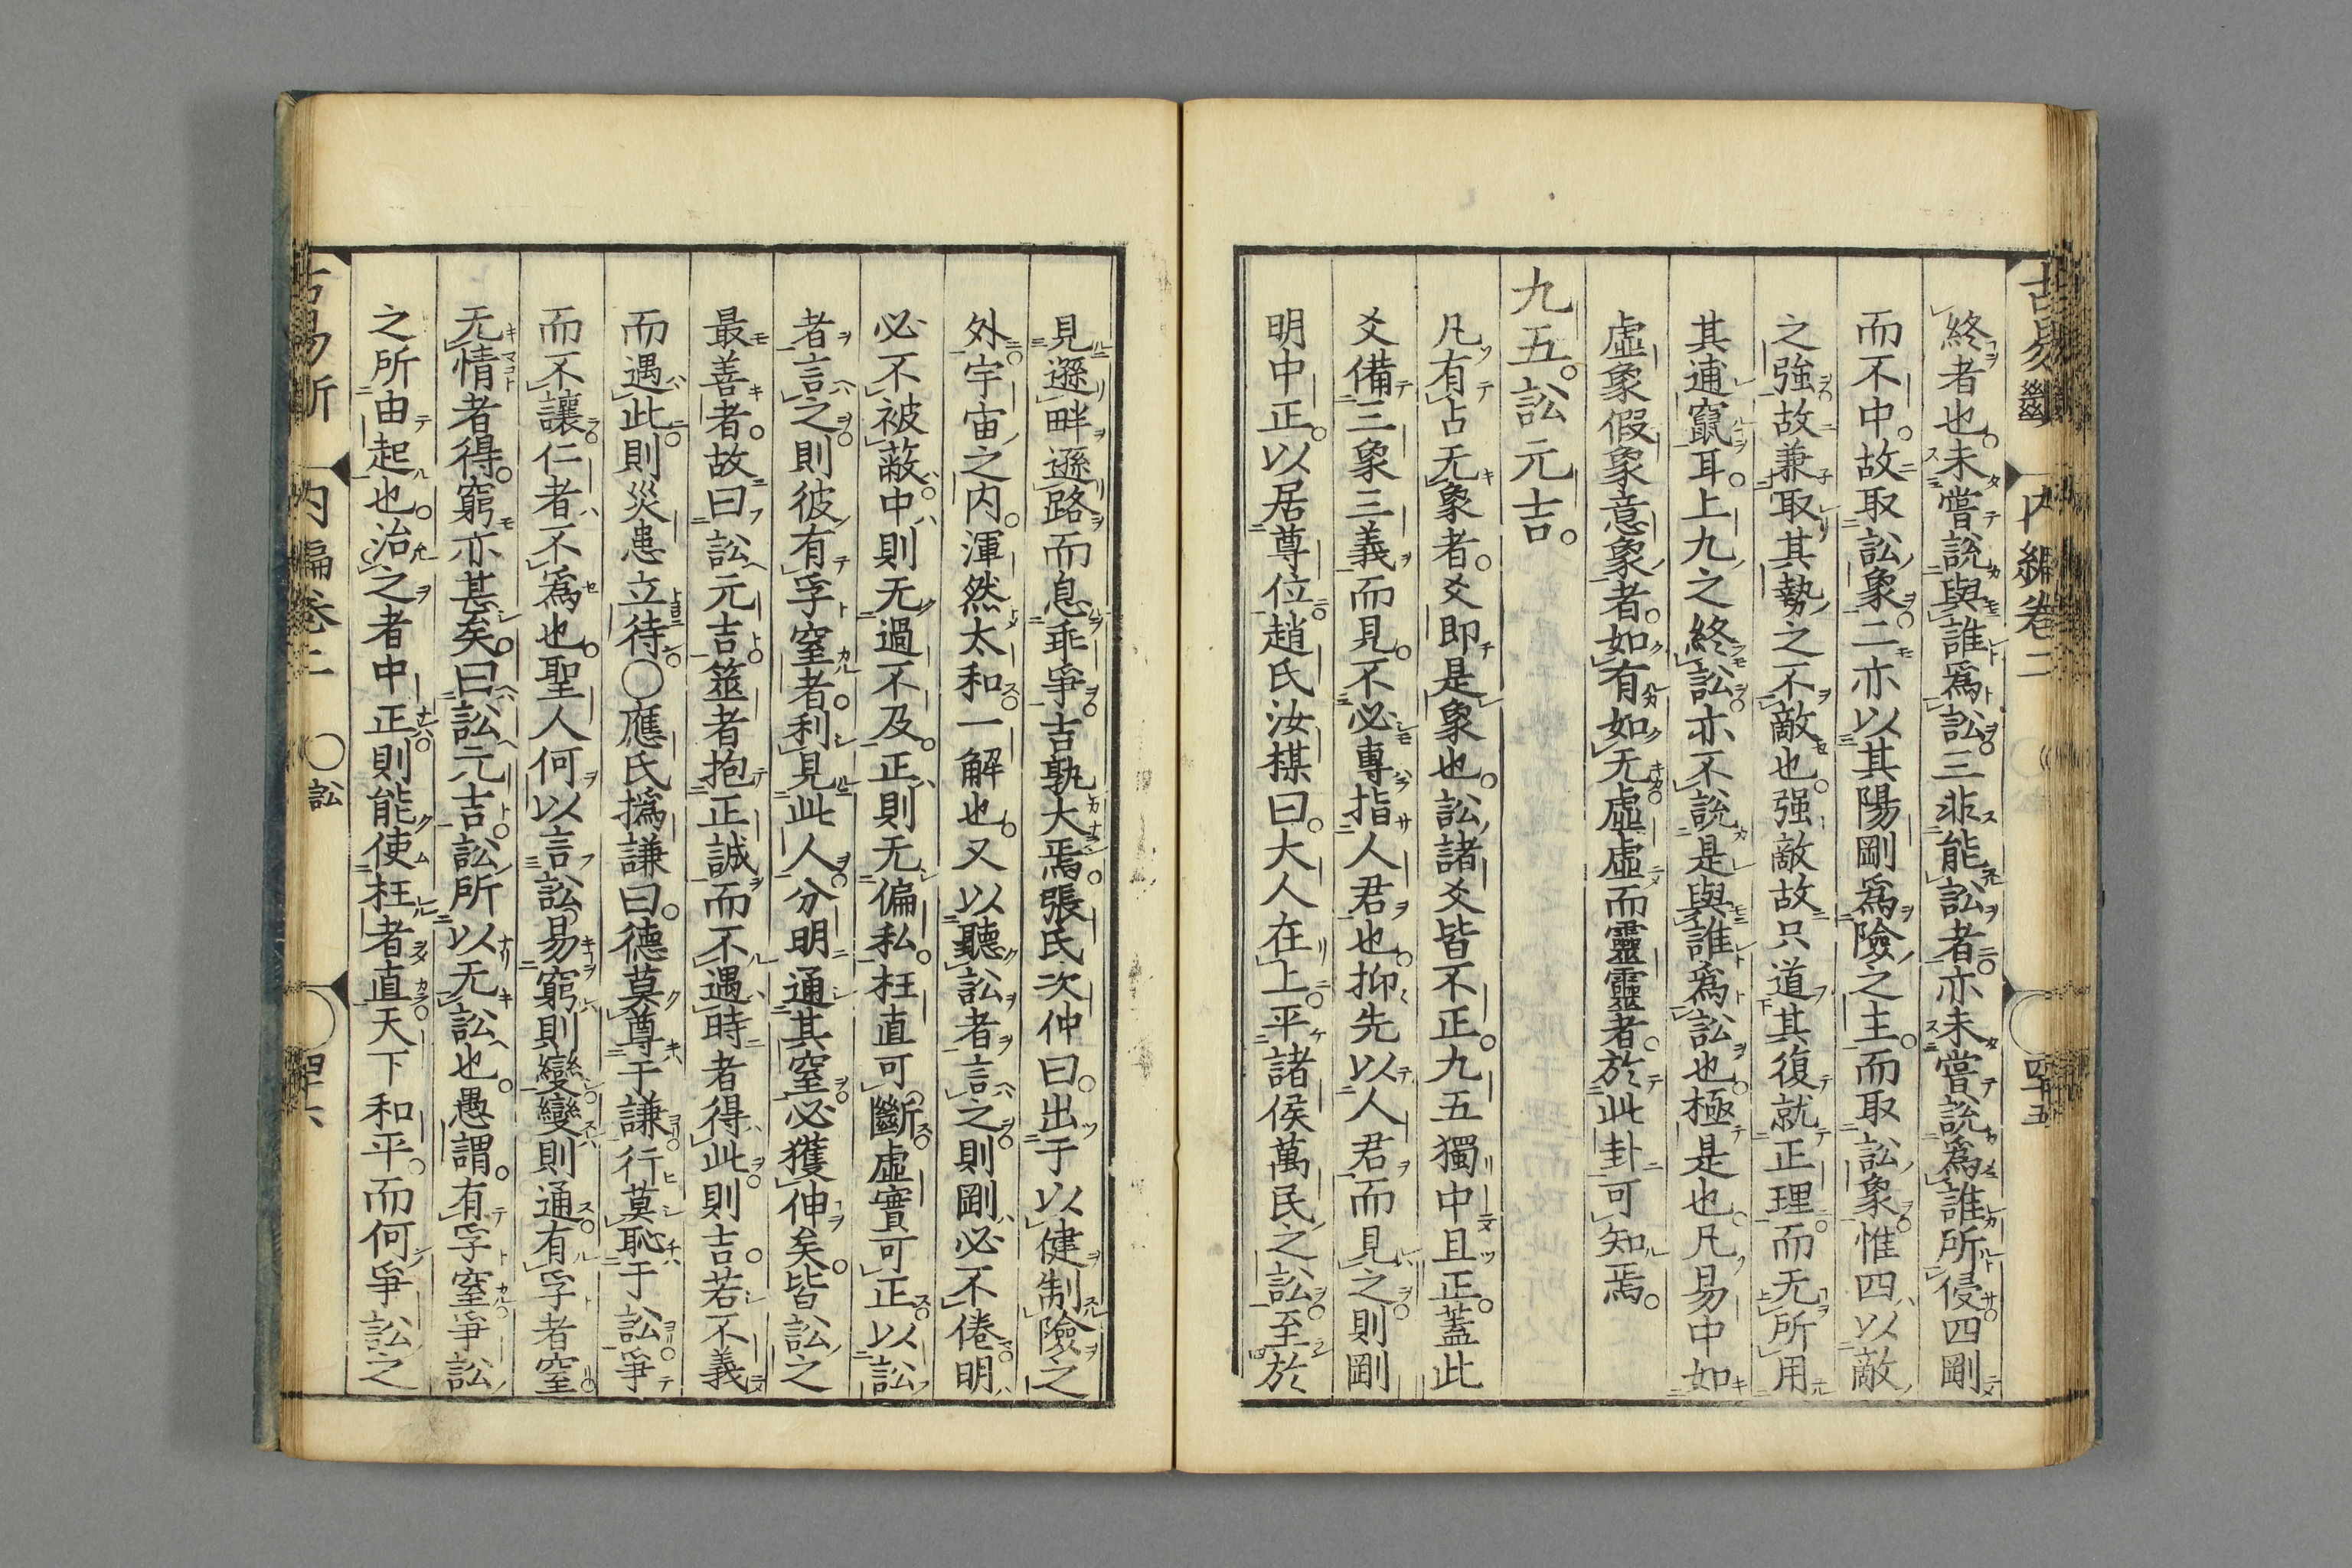 古易斷 內編卷二 四十五
終者也。未嘗說與誰爲訟。三非能訟者。亦未嘗說爲誰所侵。四剛
而不中。故取訟象。二亦以其陽剛爲險之主。而取訟象。惟四以敵
之強。故兼取其勢之不敵也。强敵故只道其復就正理。而无所用
其逋竄耳。上九之終訟。亦不說是與誰爲訟也。極是也。凡易中如
虛象假象意象者。如有如无。虛虛而靈靈者。於此卦可知焉。
九五。訟元吉。
凡有占无象者。爻即是象也。訟諸爻皆不正。九五獨中且正。蓋此
爻備三象三義而見。不必專指人君也。抑先以人君而見之。則剛
明中正。以居尊位。趙氏汝楳曰。大人在上。平諸侯萬民之訟。至於
見遜畔遜路而息乖爭。吉孰大焉。張氏次仲曰。出于以健制險之
外。宇宙之内。渾然太和一解也。又以聽訟者言之。則剛必不倦。明
必不被蔽。中則无過不及。正則无偏私。枉直可斷。虛實可正。以訟
者言之。則彼有孚窒者。利見此人。分明通其窒。必獲伸矣。皆訟之
最善者。故曰訟元吉。筮者抱正誠而不遇時者得此。則吉。若不義
而遇此。則災患立待。○應氏撝謙曰。德莫尊于謙。行莫恥于訟。爭
而不讓。仁者不爲也。聖人何以言訟。易窮則變。變則通。有孚者窒。
无情者得。窮亦甚矣。曰訟元吉。訟所以无訟也。愚謂。有孚窒。爭訟
之所由起也。治之者中正。則能使枉者直。天下和平。而何爭訟之
古易斷 內編卷二 ○訟 四十六